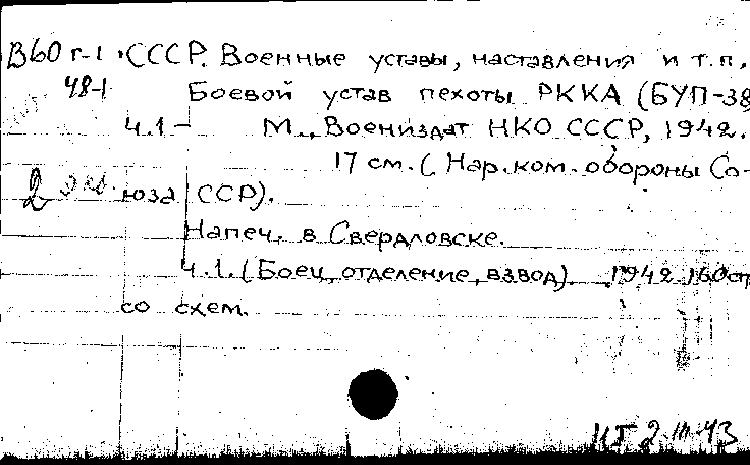 В60 г-1 СССР. Военные уставы, наставления и т.п.
48-1 Боевой устав пехоты РККА (БУП-38
Ч.1 - М., Воениздат НКО СССР, 1942.
17 см. (Нар. ком. обороны Со-
2 экз. юза ССР).
Напеч. в Свердловске.
Ч.1. (Боец, отделение, взвод). 1942. 160 стр.
со схем.